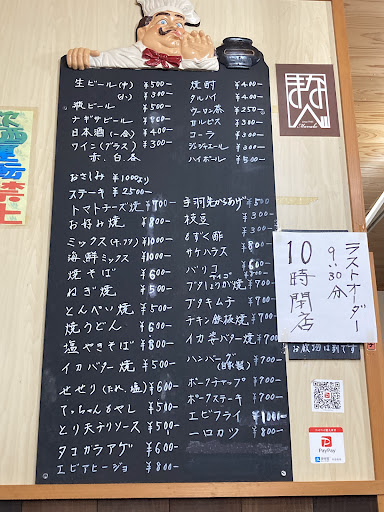 生ビール(中) ¥500-
(小) ¥300-
瓶ビール ¥500-
日本酒(一合) ¥400-
ワイン(グラス) ¥300-
赤、白、各
おさしみ ¥1000より
ステーキ ¥2500-
トマトチーズ焼 ¥700-
お好み焼 ¥800-
ミックス ¥1000-
海鮮ミックス ¥1000-
焼そば ¥600-
ねぎ焼 ¥500-
とんぺい焼 ¥500-
焼うどん ¥600-
塩やきそば ¥800-
イカバター焼 ¥500-
せせり(たれ、塩) ¥600-
てっちゃんもやし ¥500-
とり天テリソース ¥500-
タコカラアゲ ¥600-
エビアヒージョ ¥800-
焼酎 ¥400-
タルハイ ¥400-
ウーロン茶 ¥250-
カルピス ¥300-
コーラ ¥300-
ジンジャエール ¥300-
ハイボール ¥500-
手羽先からあげ ¥500
枝豆 ¥300-
もずく酢 ¥300-
サケハラス ¥800-
バリコ
ブタキムチ ¥700-
チキン鉄板焼 ¥700-
イカ肝バター焼 ¥700-
ハンバーグ(自家製) ¥700-
ポークチャップ ¥700-
ポークステーキ ¥700-
エビフライ ¥1000-
一口カツ ¥800-
ラストオーダー
9:30分
10時閉店
PayPay